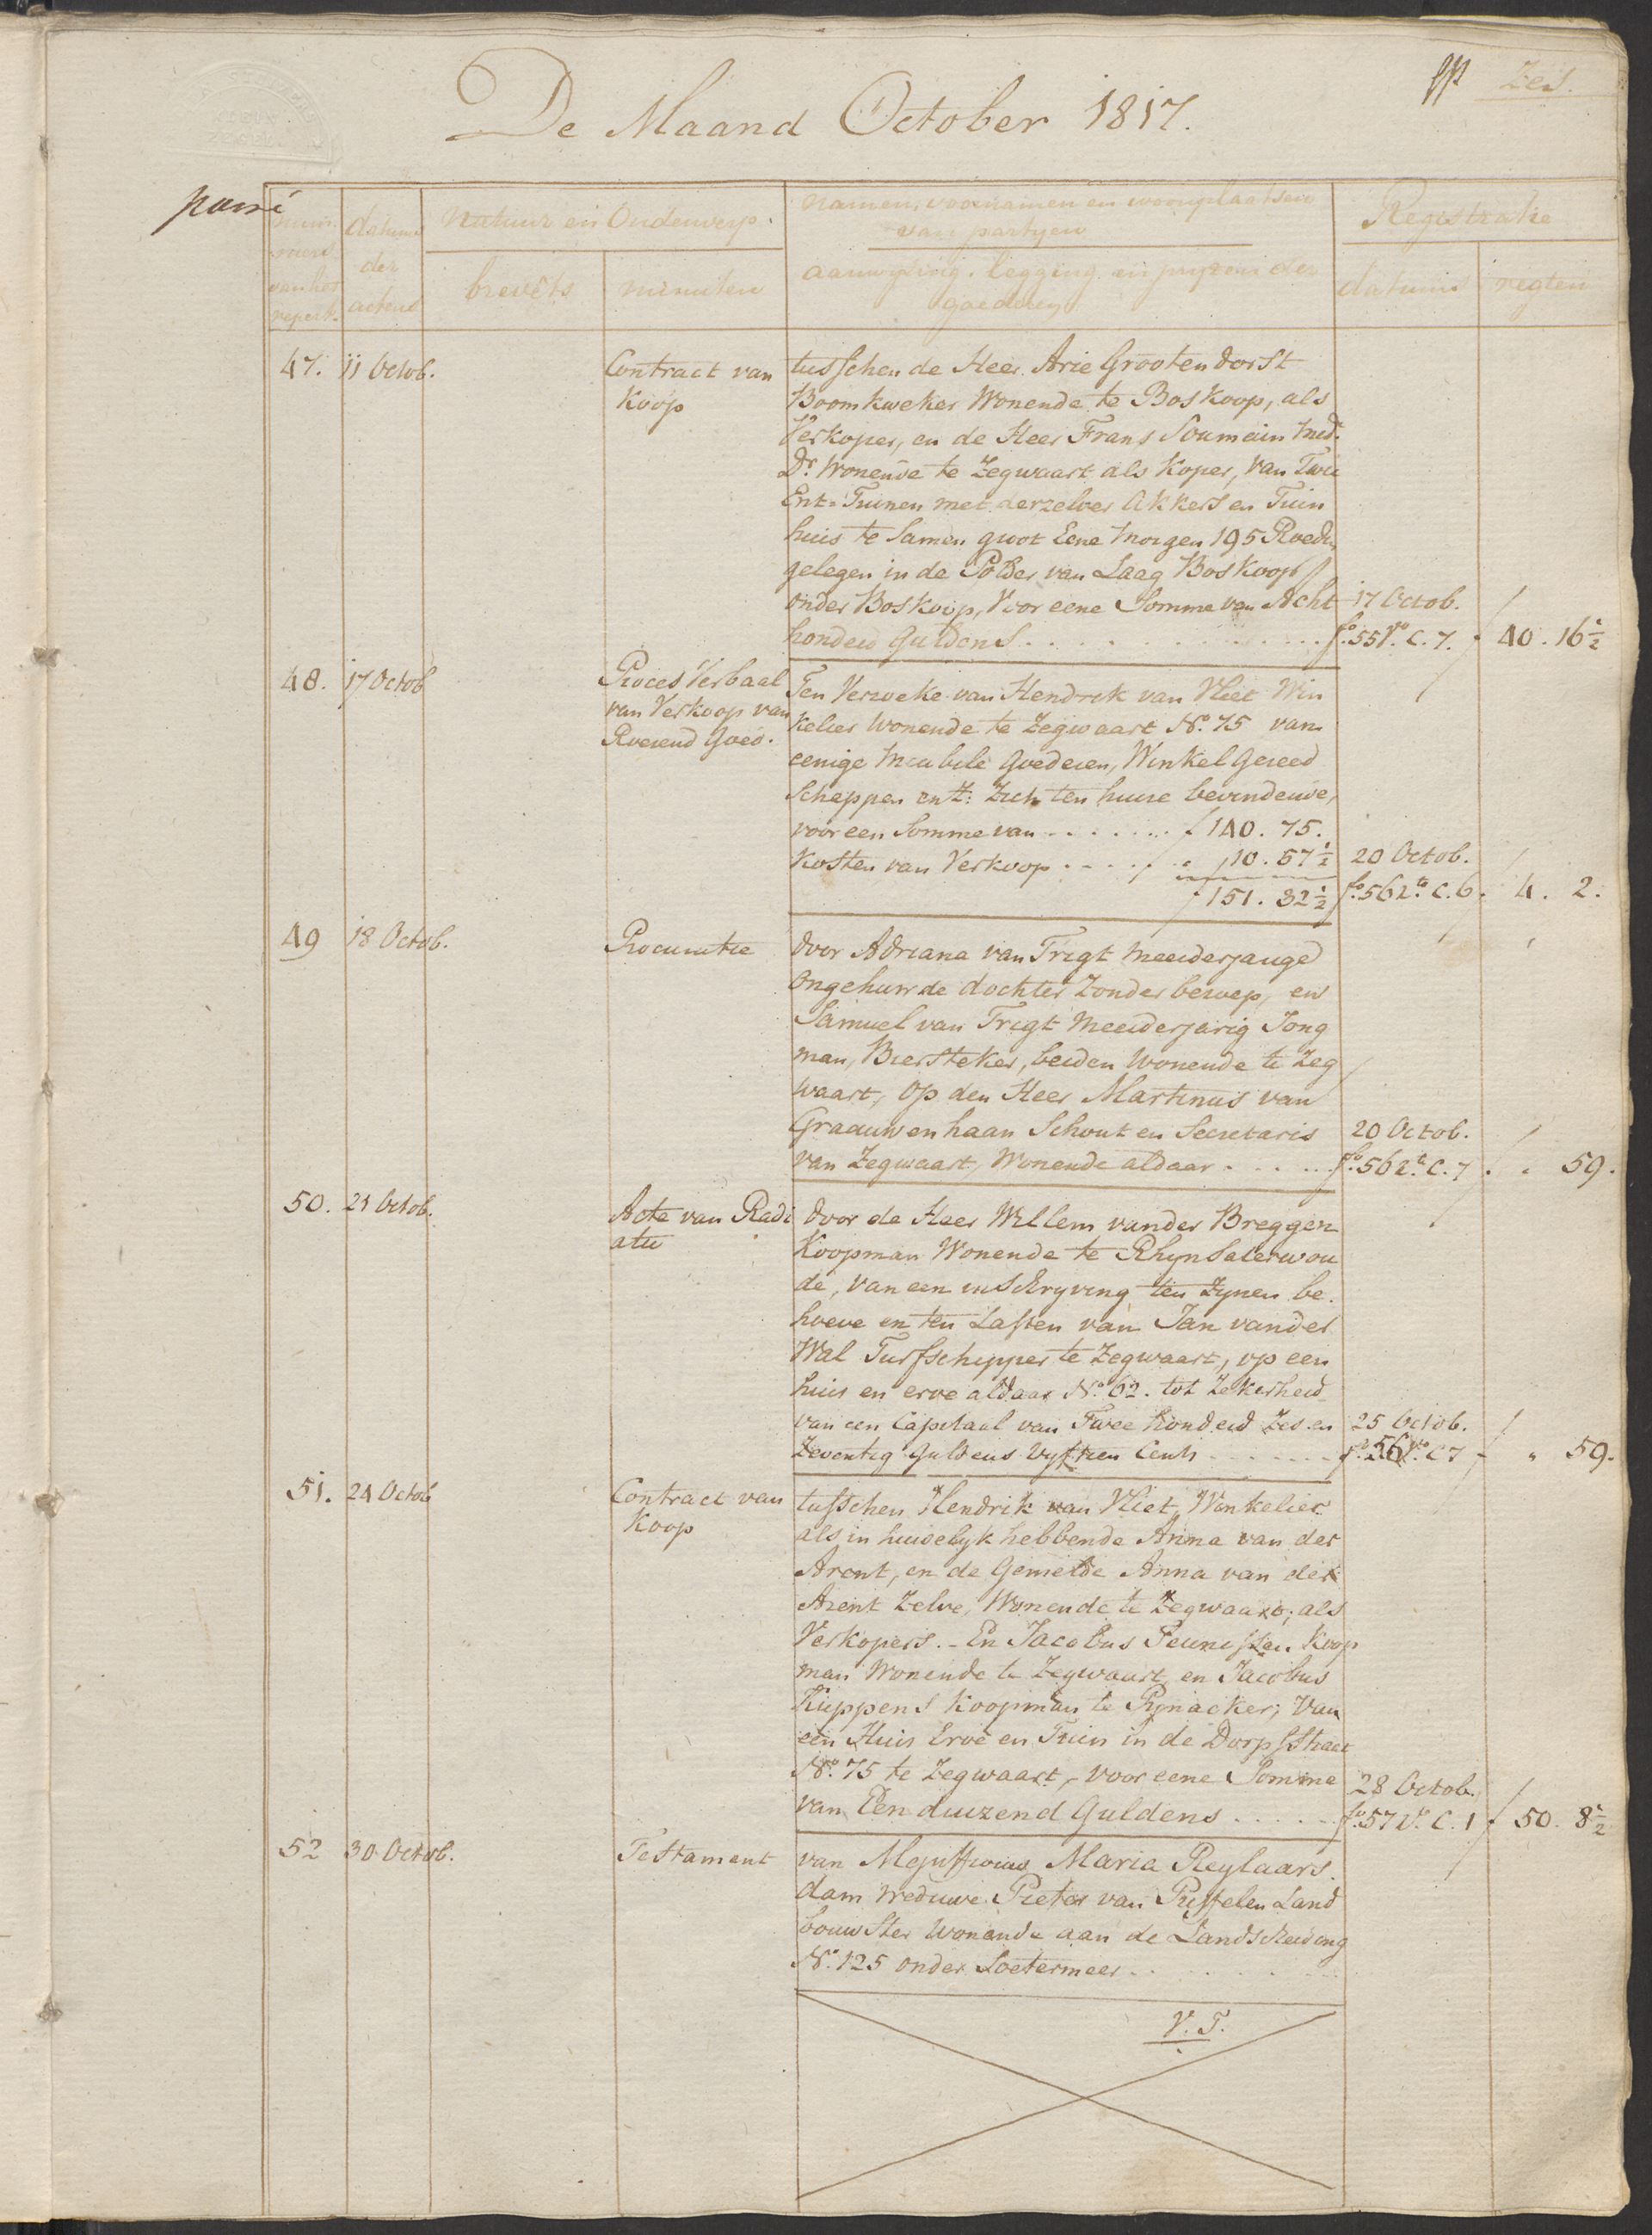 Zes.
De Maand October 1817.
num
mers
van het
repert.
datums
der
actens
Natuur en Onderwerp.
brevêts
minuten
namen, voornamen en woonplaatsen
van partyen
aanwyzing, legging en pryzen der
goederen
Registratie
datums
regten
47. 11 Octob.
Contract van
Koop
tusschen de Heer Arie Grootendorst
Boomkweker Wonende te Boskoop, als
Verkoper, en de Heer Frans Soumain Med.
Dr. Wonende te Zegwaart als Koper, van Twee
Ent-Tuinen met derzelver Akkers en Tuin
huis te Samen groot Eene morgen 195 Roeden
gelegen in de Polder van Laag Boskoop
onder Boskoop, Voor eene Somme van Acht
honderd Guldens
17 Octob.
fo. 55 Vo. C. 7. 40. 16½
48. 17 Octob
Proces Verbaal
van Verkoop van
Roerend Goed.
Ten Verzoeke van Hendrik van Vliet Win
kelier Wonende te Zegwaart No. 75 van
eenige Meubele Goederen, Winkel Gereed
Schappen enz: Zich ten huise bevindende,
voor een Somme van f 140. 75.
Kosten van Verkoop 10. 57½
f 151. 32½
20 Octob.
fo. 56 2to. C. 6. 4. 2.
49 18 Octob.
Procuratie
door Adriana van Trigt meerderjarige
Ongehuwde dochter Zonder beroep, en
Samuel van Trigt Meerderjarig Jong
man, Biersteker, beiden Wonende te Zeg
waart, Op den Heer Martinus van
Graauwenhaan Schout en Secretaris
van Zegwaart, Wonende aldaar
20 Octob.
fo. 56 2to. C. 7 " 59.
50. 21 Octob.
Acte van Radi
atie
door de Heer Willem vander Breggen
Koopman Wonende te Rhynsaterwou
de, van een inschryving ten Zynen be
hoeve en ten Lasten van Jan vander
Wal Turfschipper te Zegwaart, op een
huis en erve aldaar No. 62. tot Zekerheid
van een Capitaal van Twee honderd Zes en
Zeventig Guldens Vyftien Cents
25 Octob.
fo. 56 Vo. C 7 " 59.
51. 24 Octob
Contract van
Koop
tusschen Hendrik van Vliet, Winkelier
als in huwelyk hebbende Anna van der
Arent, en de Gemelde Anna van der
Arent Zelve, Wonende te Zegwaart; als
Verkopers. - En Jacobus Teunissen Koop
man Wonende te Zegwaart en Jacobus
Kuppens Koopman te Pynacker; Van
een Huis Erve en Tuin in de Dorpsstraat
No. 75 te Zegwaart, Voor eene Somme
van Een duizend Guldens
28 Octob.
fo. 57 Vo. C. 1 f 50. 8½
52 30 Octob.
Testament
van Mejuffrouw Maria Reylaars
dam Weduwe Pieter van Ryffelen Land
bouwster Wonende aan de Landscheiding
No. 125 onder Soetermeer
V. T.